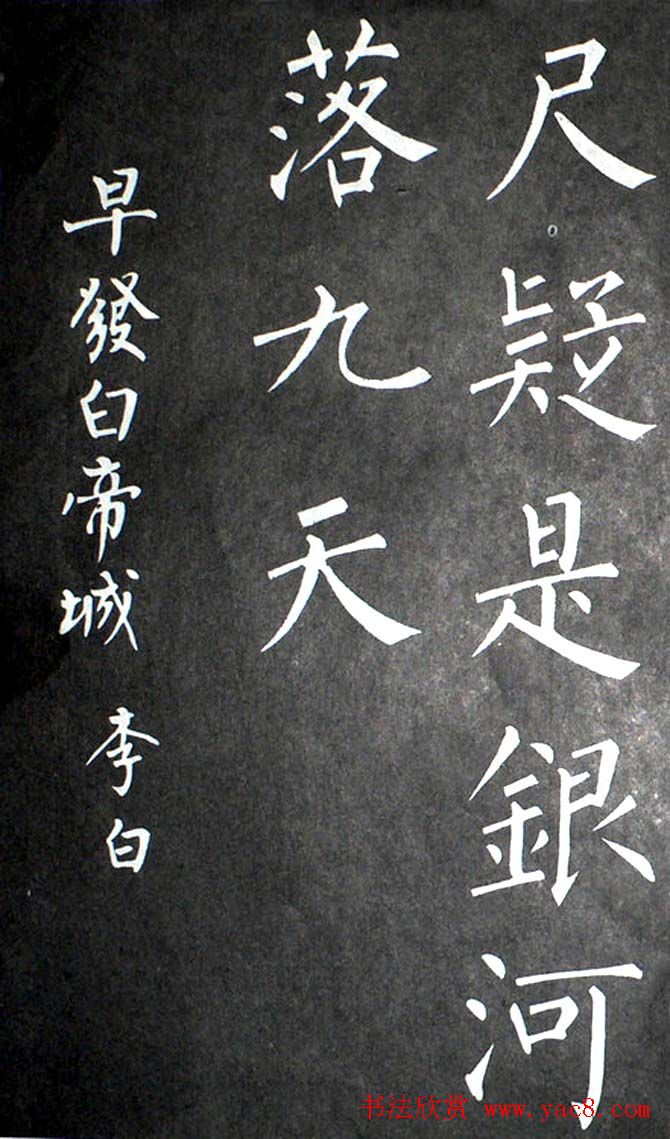 尺疑是銀河
落九天
早發白帝城 李白
书法欣赏 www.yac8.com